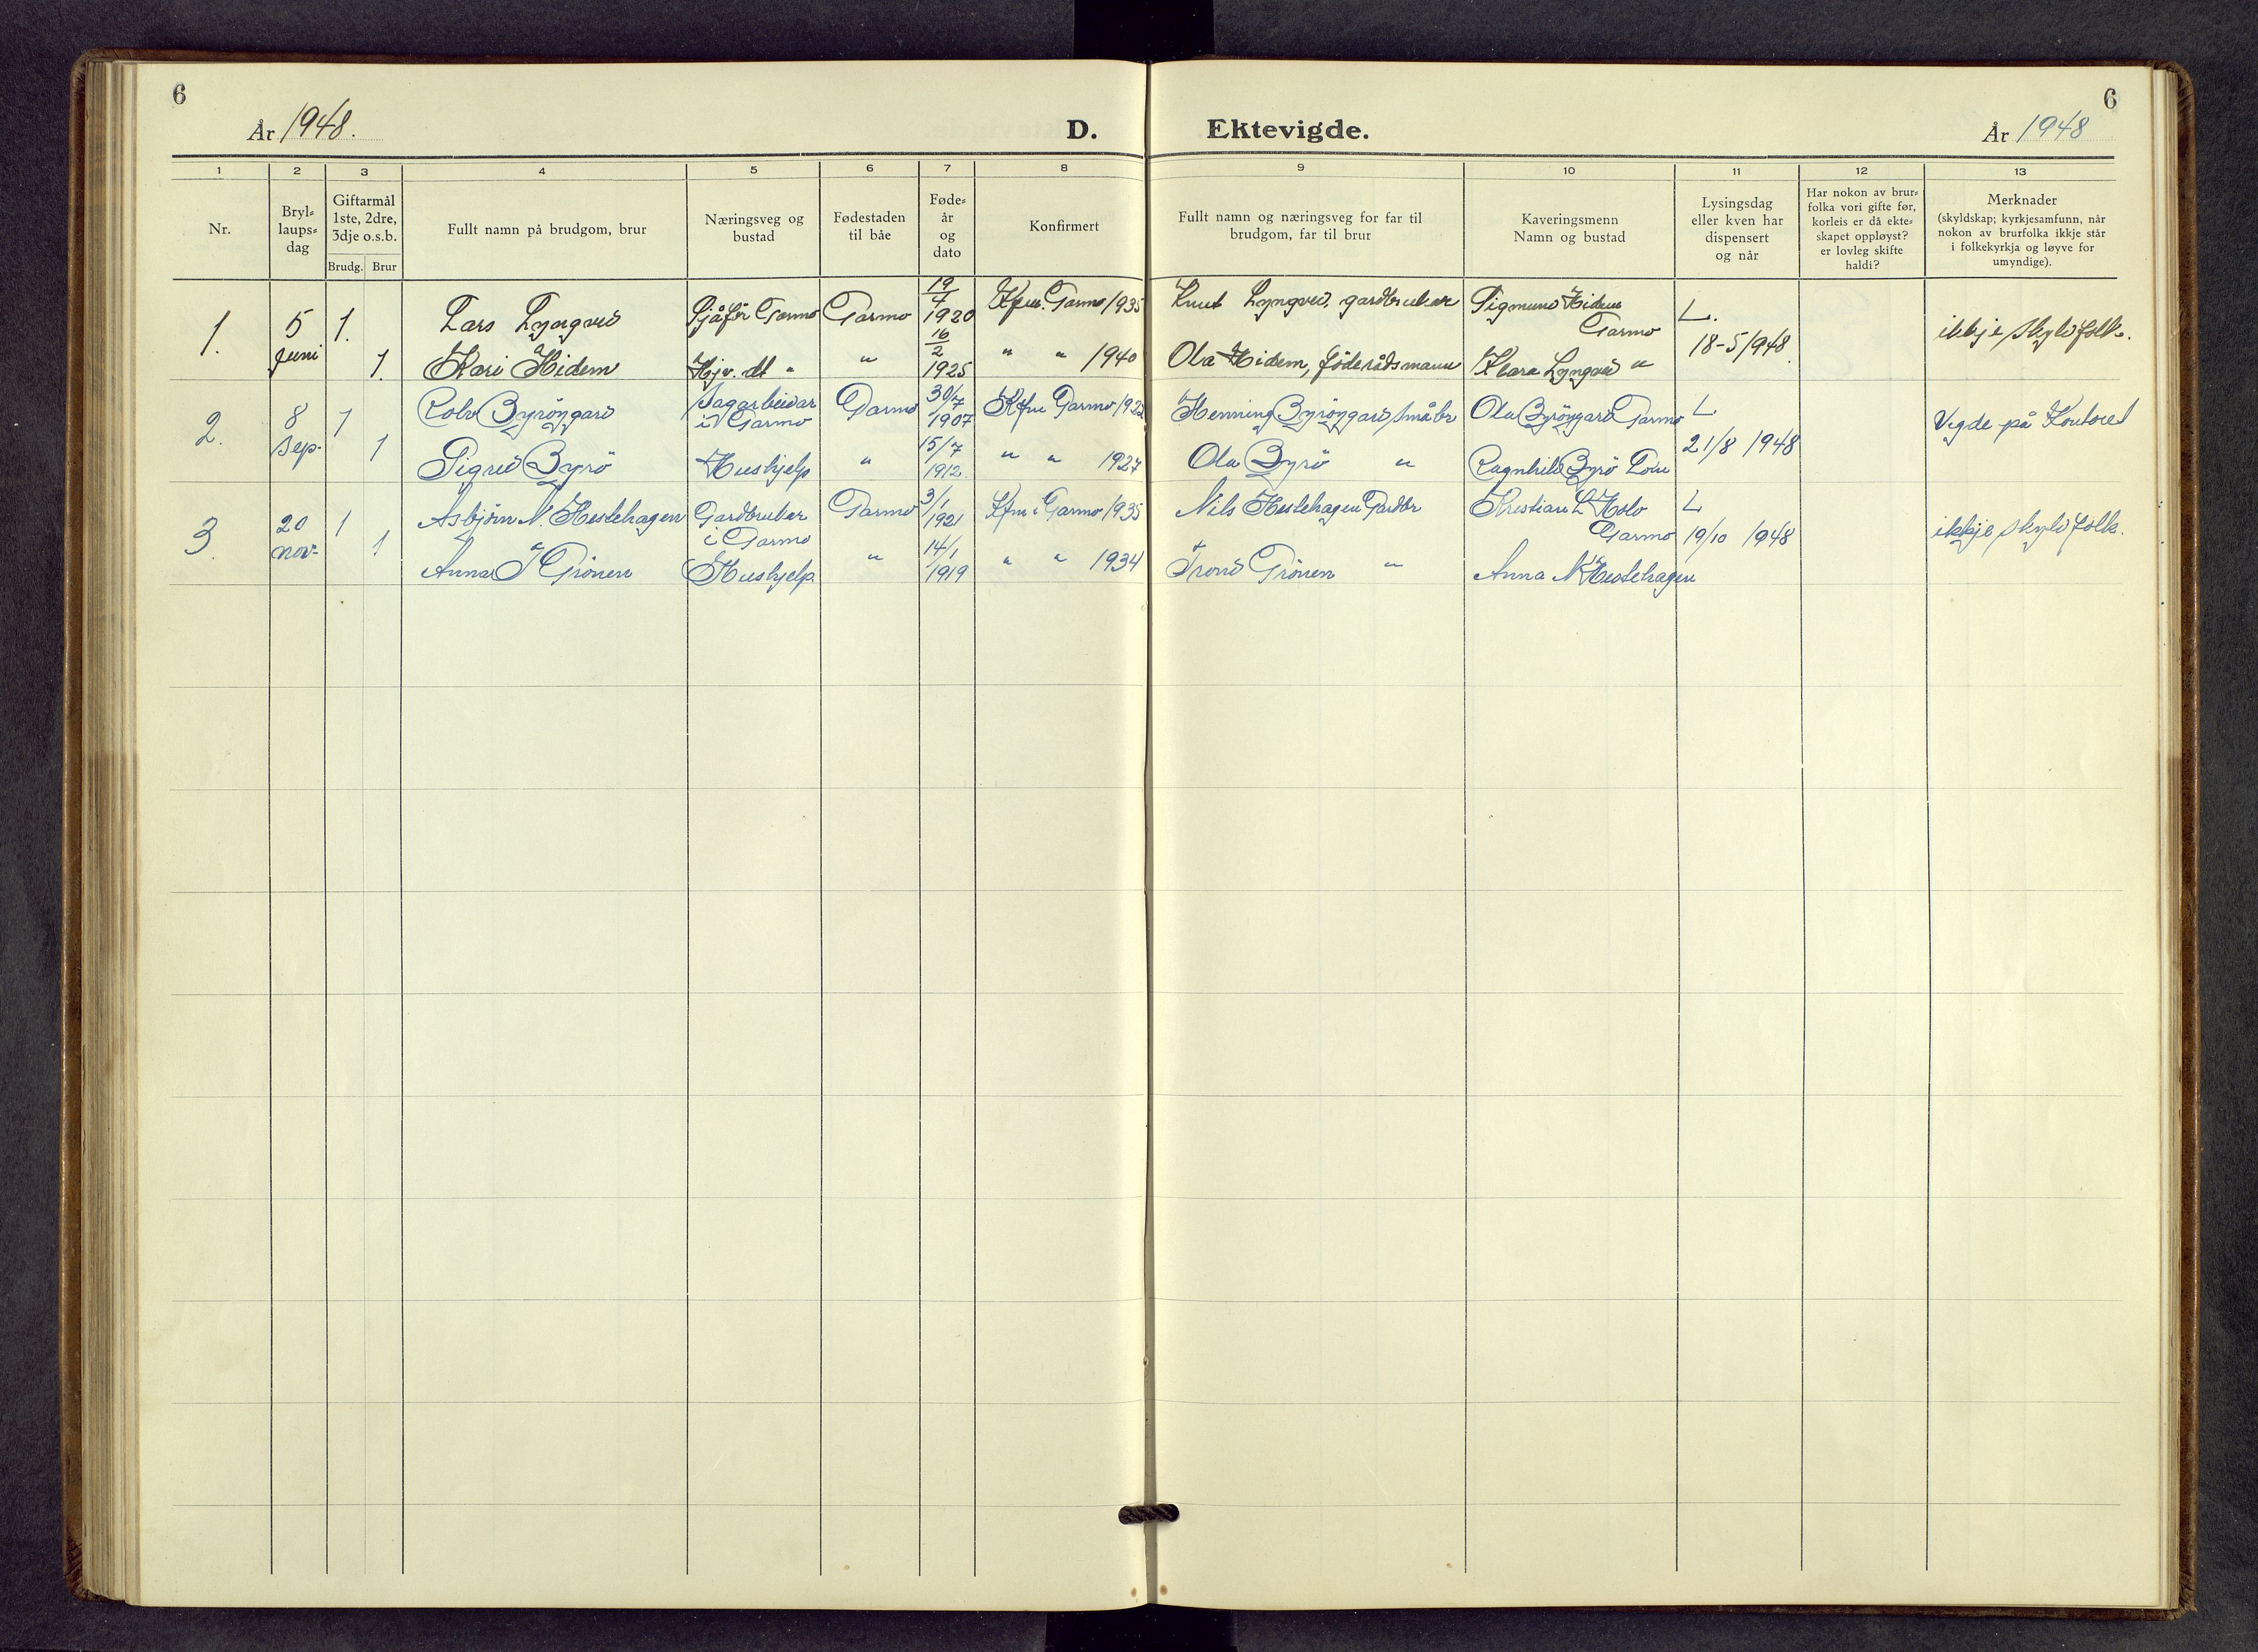 6
År 1948.
D.
1 2 3 4 5 6 7 8
Nr.
Bryl=
laups=
dag
Giftarmål
1ste, 2dre,
3dje o.s.b.
Brudg. Brur
Fullt namn på brudgom, brur
Næringsveg og
bustad
Fødestaden
til båe
Føde=
år
og
dato
Konfirmert
1. 5 1. Lars Lyngved Sjåfør Garmo Garmo 19/4 1920 Kfm. Garmo 1935
juni 1. Kari Hidem Hjv. dt " " 16/2 1925 " " 1940
2. 8 1 Rolv Byrøygard Sagarbeidar Garmo 30/7 1907 Kfm Garmo
sep. i Garmo
1 Sigrid Byrø Hushjelp " 15/7 1912. " " 1927
3. 20 1 Asbjörn N. Hestehagen Gardbrukar Garmo 3/1 1921 Kfm i Garmo 1935
nov. 1 i Garmo
Anna T Grönen Hushjelp. " 14/1 1919 " " 1934
6
Ektevigde.
År 1948
9 10 11 12 13
Fullt namn og næringsveg for far til
brudgom, far til brur
Kaveringsmenn
Namn og bustad
Lysingsdag
eller kven har
dispensert
og når
Har nokon av brur=
folka vori gifte før,
korleis er då ekte=
skapet oppløyst?
er lovleg skifte
haldi?
Merknader
(skyldskap; kyrkjesamfunn, når
nokon av brurfolka ikkje står
i folkekyrkja og løyve for
umyndige).
Knut Lyngved, gardbrukar Sigmund Hidem L.
Garmo 18-5/1948. ikkje skyldfolk.
Ola Hidem, föderådsmann Klara Lyngved "
Henning Byrøygard, småbr Ola Byrøygard Garmo L
21/8 1948 Vigde på Kontoret
Ola Byrø " Ragnhild Byrø
Nils Hestehagen Gardbr Kristian L Holö L
Garmo 19/10 1948 ikkje skyldfolk.
Trond Grönen " Anna N Hestehagen